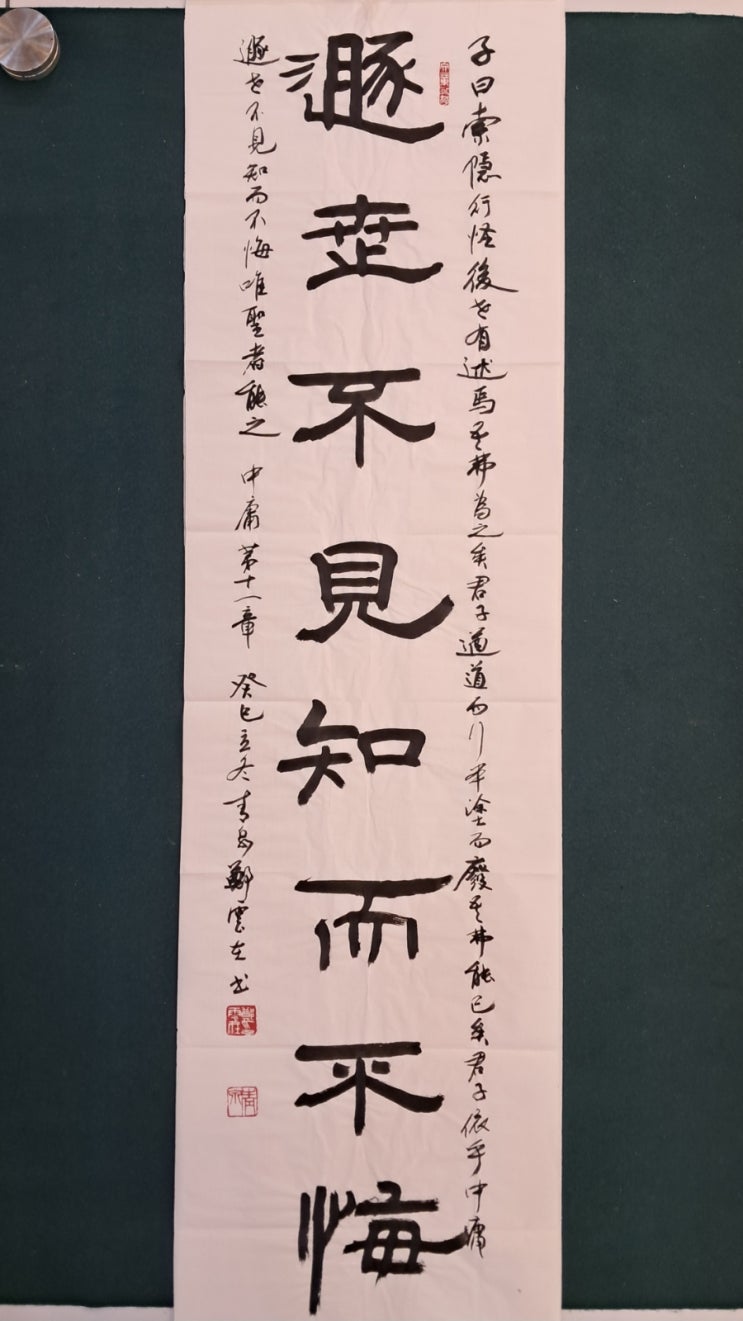 子曰索隱行怪後世有述焉吾弗為之矣君子遵道而行半塗而廢吾弗能已矣君子依乎中庸
遯世不見知而不悔
遯世不見知而不悔唯聖者能之 中庸第十一章 癸巳立冬青島鄭雲在书